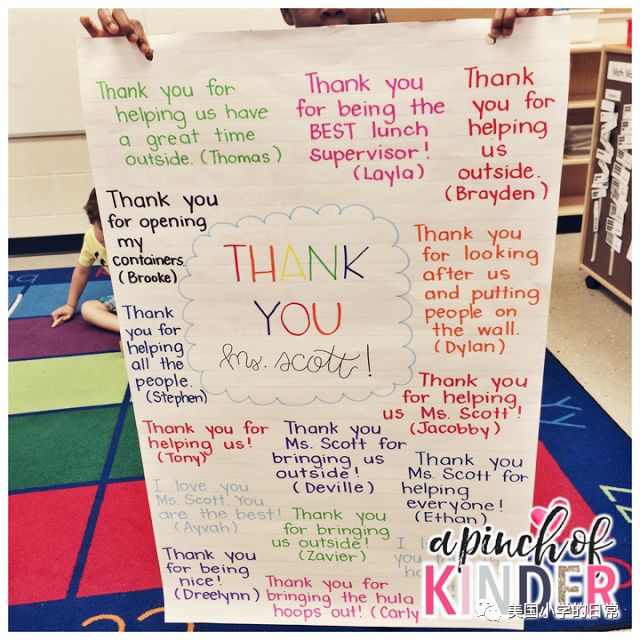 Thank you for
helping us have
a great time
outside. (Thomas)
Thank you
for being the
BEST lunch
supervisor!
(Layla)
Thank
you for
helping
us
outside.
(Brayden)
Thank you
for opening
my
containers.
(Brooke)
THANK
YOU
Ms. Scott!
Thank you
for looking
after us
and putting
people on
the wall.
(Dylan)
Thank
you for
helping
all the
people.
(Stephen)
Thank you
for helping
us Ms. Scott!
(Jacobby)
Thank you for
helping us!
(Tony)
Thank you
Ms. Scott for
bringing us
outside!
(Deville)
Thank you
Ms. Scott for
helping
everyone!
(Ethan)
I love you
Ms. Scott. You
are the best!
(Ayvah)
Thank you
for bringing
us outside!
(Zavier)
Thank you
for being
nice!
(Dreelynn)
Thank you for
bringing the hula
hoops out! (Carly
a pinch of
KINDER
美国小学的日常